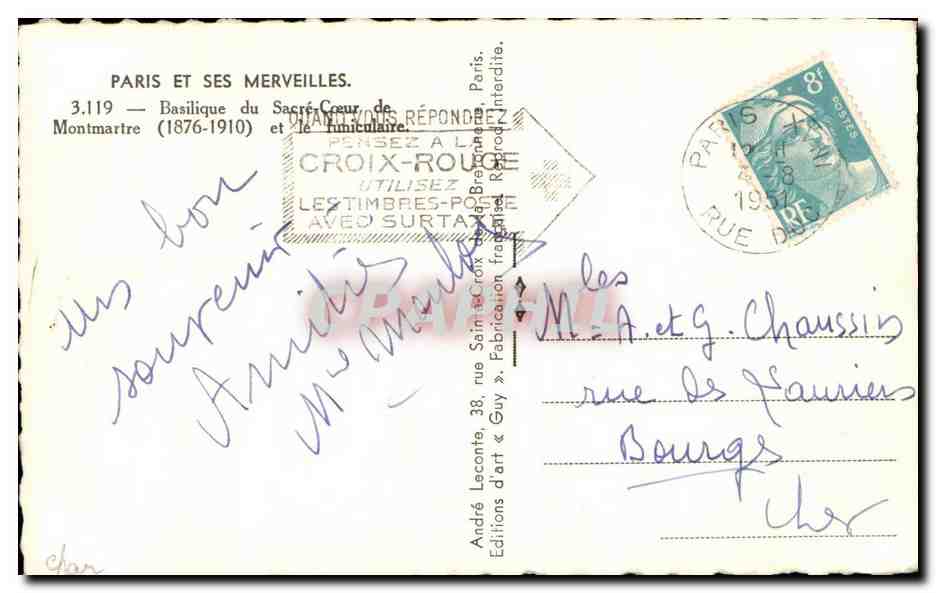 PARIS ET SES MERVEILLES.
3.119 — Basilique du Sacré-Cœur de
Montmartre (1876-1910) et le funiculaire.
QUAND VOUS RÉPONDREZ
PENSEZ A LA
CROIX-ROUGE
UTILISEZ
LES TIMBRES-POSTE
AVEC SURTAXE
PARIS
1951
RUE
8F
POSTES
RF
un bon
souvenir
Amitiés
André Leconte, 38, rue Sainte-Croix de la Bretonnerie, Paris.
Editions d'art « Guy ». Fabrication française. Reprod. interdite.
les
M. A. et G. Chaussin
rue des Lauriers
Bourges
Cher
cher
CPARAMA